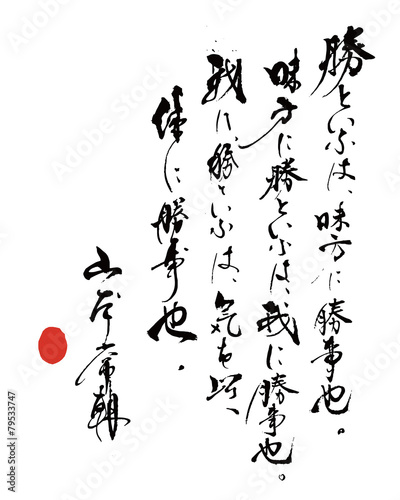 勝といふは、味方に勝事也。
味方に勝といふは、我に勝事也。
我に勝といふは、気を以、
体に勝事也．
山本常朝
Adobe Stock | #79533747